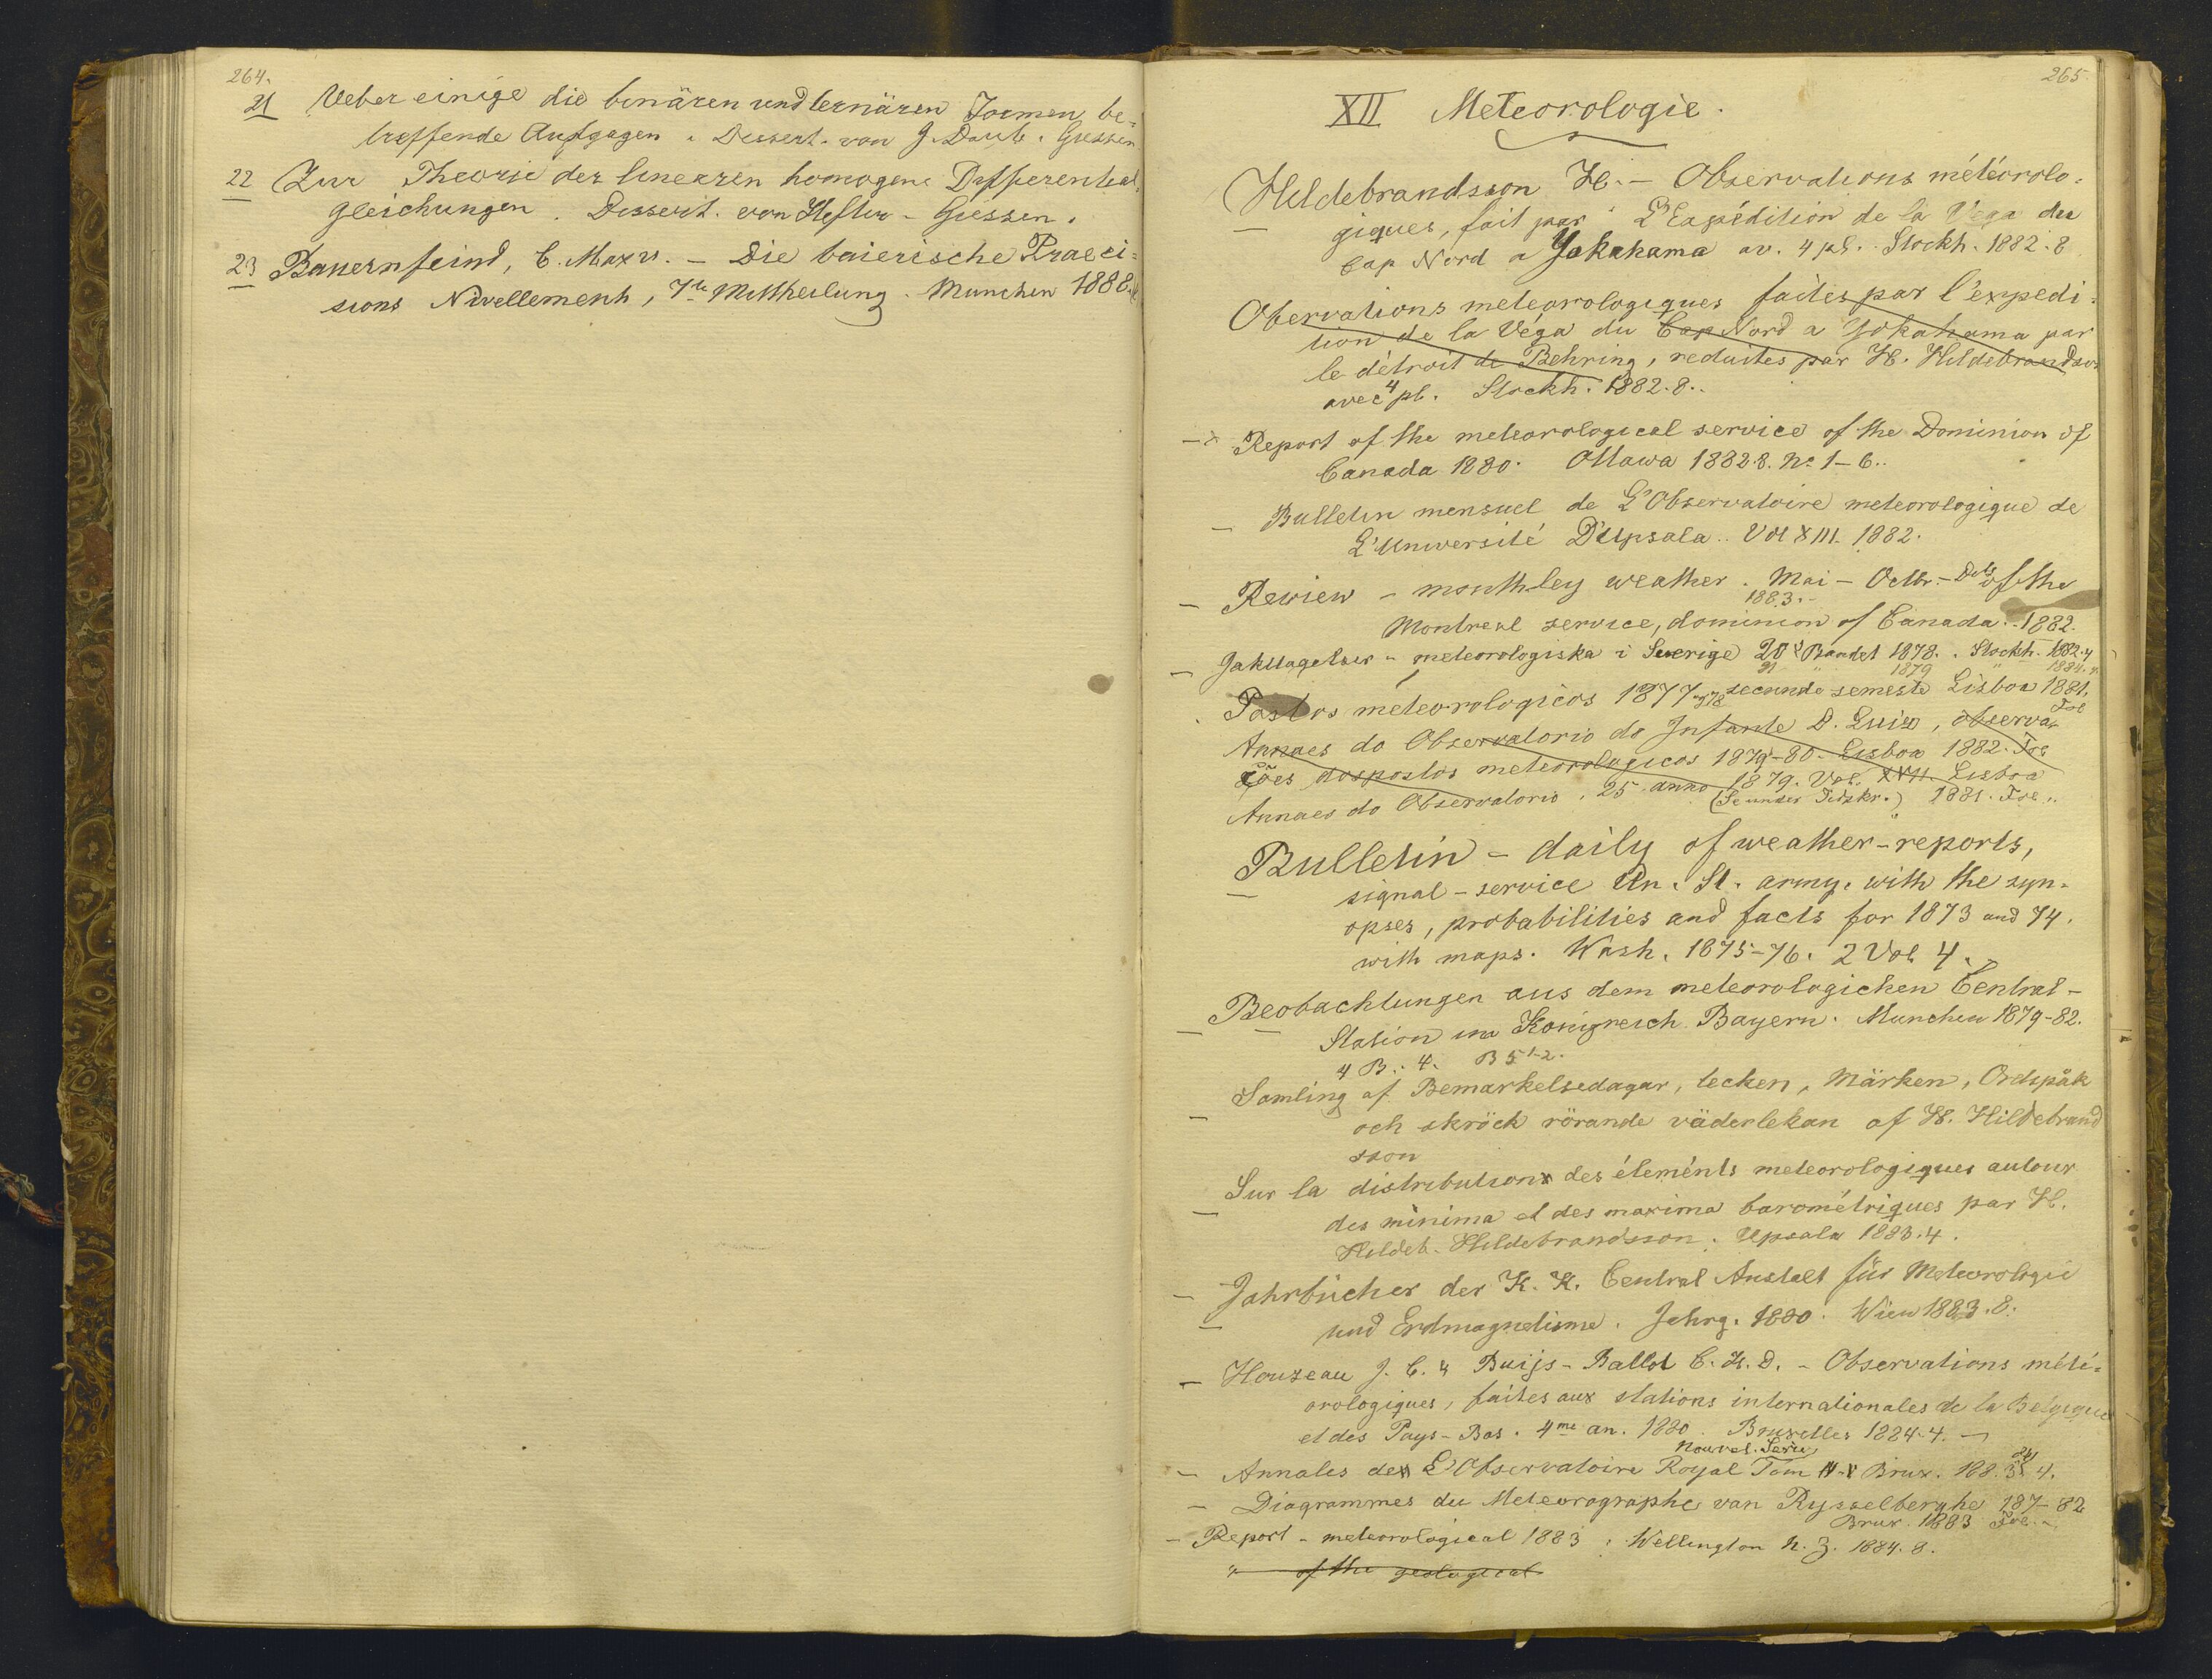 264.
21 Ueber einige die binären und ternären Formen be-
treffende Aufgagen. Dissert. von J. Daub. Giessen
22 Zur Theorie der linearen homogene Differential
gleichungen. Dissert. von Hefter - Giessen.
23 Bauernfeind, C. Max v. - Die baierische Praeci-
sions Nivellement, 7te Mittheilung. Munchen 1888.
265.
XII Meteorologie.
Hildebrandsson H. - Observations météorolo-
giques, fait par L'Expédition de la Vega du
Cap Nord a Yokahama av. 4 pl. Stockh. 1882. 8
Obervations meteorologiques faites par l'expedi-
tion de la Véga du Cap Nord a Yokahama par
le détroit de Behring, reduites par H. Hildebrandsson
avec 4 pl. Stockh. 1882. 8..
Report of the meteorological service of the Dominion of
Canada 1880. Ottawa 1882 8. No 1-6..
Bulletin mensuel de L'Observatoire meteorologique de
L'Université D'Upsala.. Vol XIII. 1882.
Rewiew - monthley weather. Mai - Octbr. - of the
1883.-
Montreal service, dominion of Canada. - 1882.
Jakttagelser - meteorologiska i Sverige 20 Bandet 1878. Stockh. 1882. 4
21 1879 " 1884. 4
Postos meteorologicos 1877 78 secundo semeste Lisboa 1881.
Fol
Annaes do Observatorio do Infante D. Luiz, observa-
ções dos postos meteorologicos 1879-80 - Lisboa 1882. Fol
Annaes do Observatorio, 25 anno 1879. Vol. XVII. Lisboa
(Se under Tidskr.) 1881. Fol..
Bulletin - daily of weather-reports,
signal-service Un. St. army, with the syn-
opses, probabilities and facts for 1873 and 74.
with maps. Wash. 1875-76. 2 Vol 4.
Beobachtungen aus dem meteorologichen Central-
Station im Königreich Bayern. Munchen 1879-82.
4 B.. 4. B 5 1-2.
Samling af Bemarkelsedagar, tecken, Märken, Ordspåk
och skröck rörande väderlekan af H. Hildebrand
sson
Sur la distribution des éleménts meteorologiques autour
des minima et des maxima barométriques par H.
Hildeb. Hildebrandsson. Upsala 1883. 4.
Jahrbücher der K. K. Central Anstalt für Meteorologie
und Erdmagnetisme. Jahrg. 1880. Wien 1883. 8.
Houzeau J. C. & Buijs-Ballot C. H. D. - Observations mété-
orologiques, faites aux stations internationales de la Belgique
et des Pays-Bas. 4me an. 1880. Bruxelles 1884. 4. -
Nouvel. Serie
Annales de L'Observatoire Royal Tom IV-V Brux. 188 4.
Diagrammes du Meteorographe van Rysselberghe 187-82
Brux. 1883 Fol. -
Report - meteorological 1883. Wellington N. Z. 1884. 8.
" of the geological